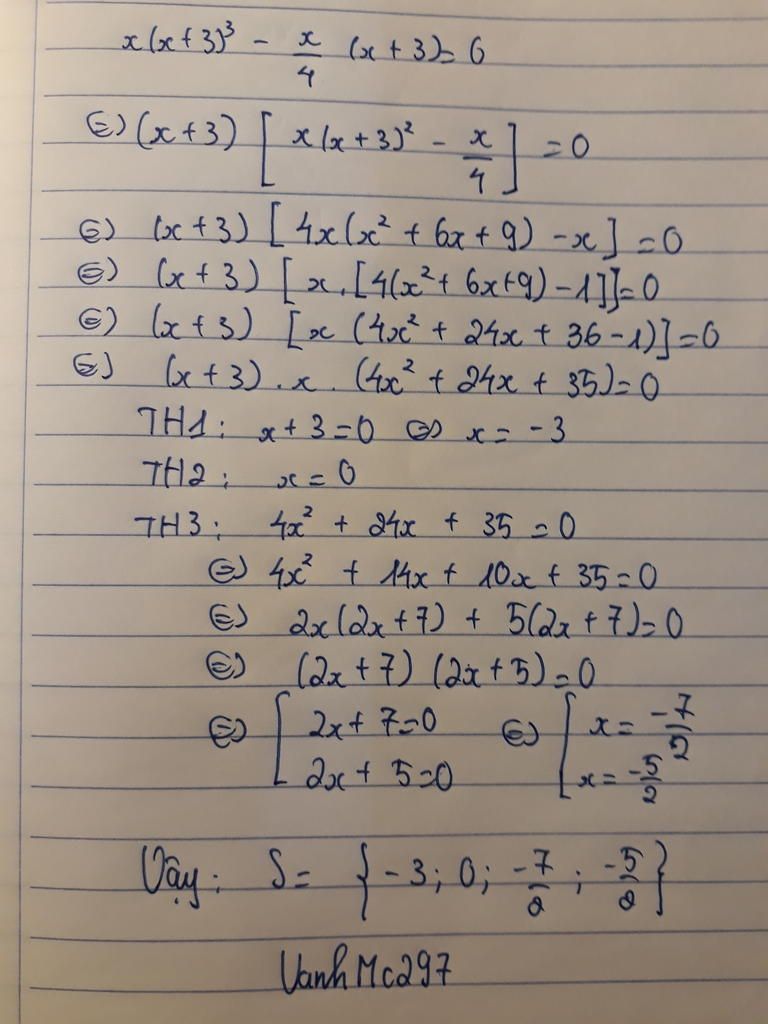 x(x+3)³ - x/4 (x+3) = 0
⇔ (x+3) [ x(x+3)² - x/4 ] = 0
⇔ (x+3) [ 4x(x² + 6x + 9) - x ] = 0
⇔ (x+3) [ x. [4(x² + 6x+9) - 1]] = 0
⇔ (x+3) [x (4x² + 24x + 36 - 1)] = 0
⇔ (x+3) . x . (4x² + 24x + 35) = 0
TH1: x + 3 = 0 ⇔ x = -3
TH2: x = 0
TH3: 4x² + 24x + 35 = 0
⇔ 4x² + 14x + 10x + 35 = 0
⇔ 2x(2x+7) + 5(2x+7) = 0
⇔ (2x+7) (2x+5) = 0
⇔ [ 2x+7=0 ⇔ [ x = -7/2
2x + 5=0 x = -5/2
Vậy: S = { -3; 0; -7/2 ; -5/2 }
VanhMc297